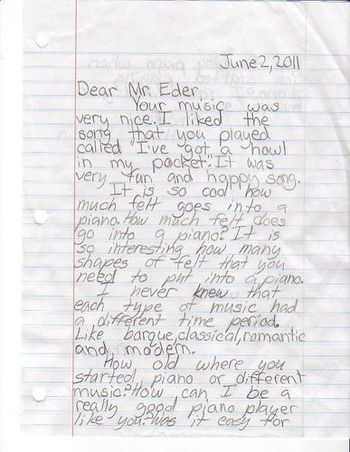 June 2, 2011
Dear Mr. Eder,
Your music was
very nice. I liked the
song that you played
called "I've got a howl
in my pocket." It was
very fun and happy song.
It is so cool how
much felt goes into a
piano. How much felt does
go into a piano? It is
so interesting how many
shapes of felt that you
need to put into a piano.
I never knew that
each type of music had
a different time period.
Like barque, classical, romantic
and modern.
How old where you
started piano or different
music? How can I be a
really good piano player
like you. Was it easy for